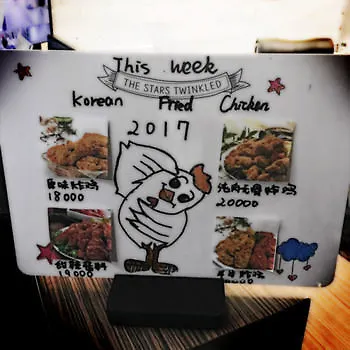 This week
THE STARS TWINKLED
Korean Fried Chicken
2017
原味炸鸡
18000
纯肉无骨炸鸡
20000
19000